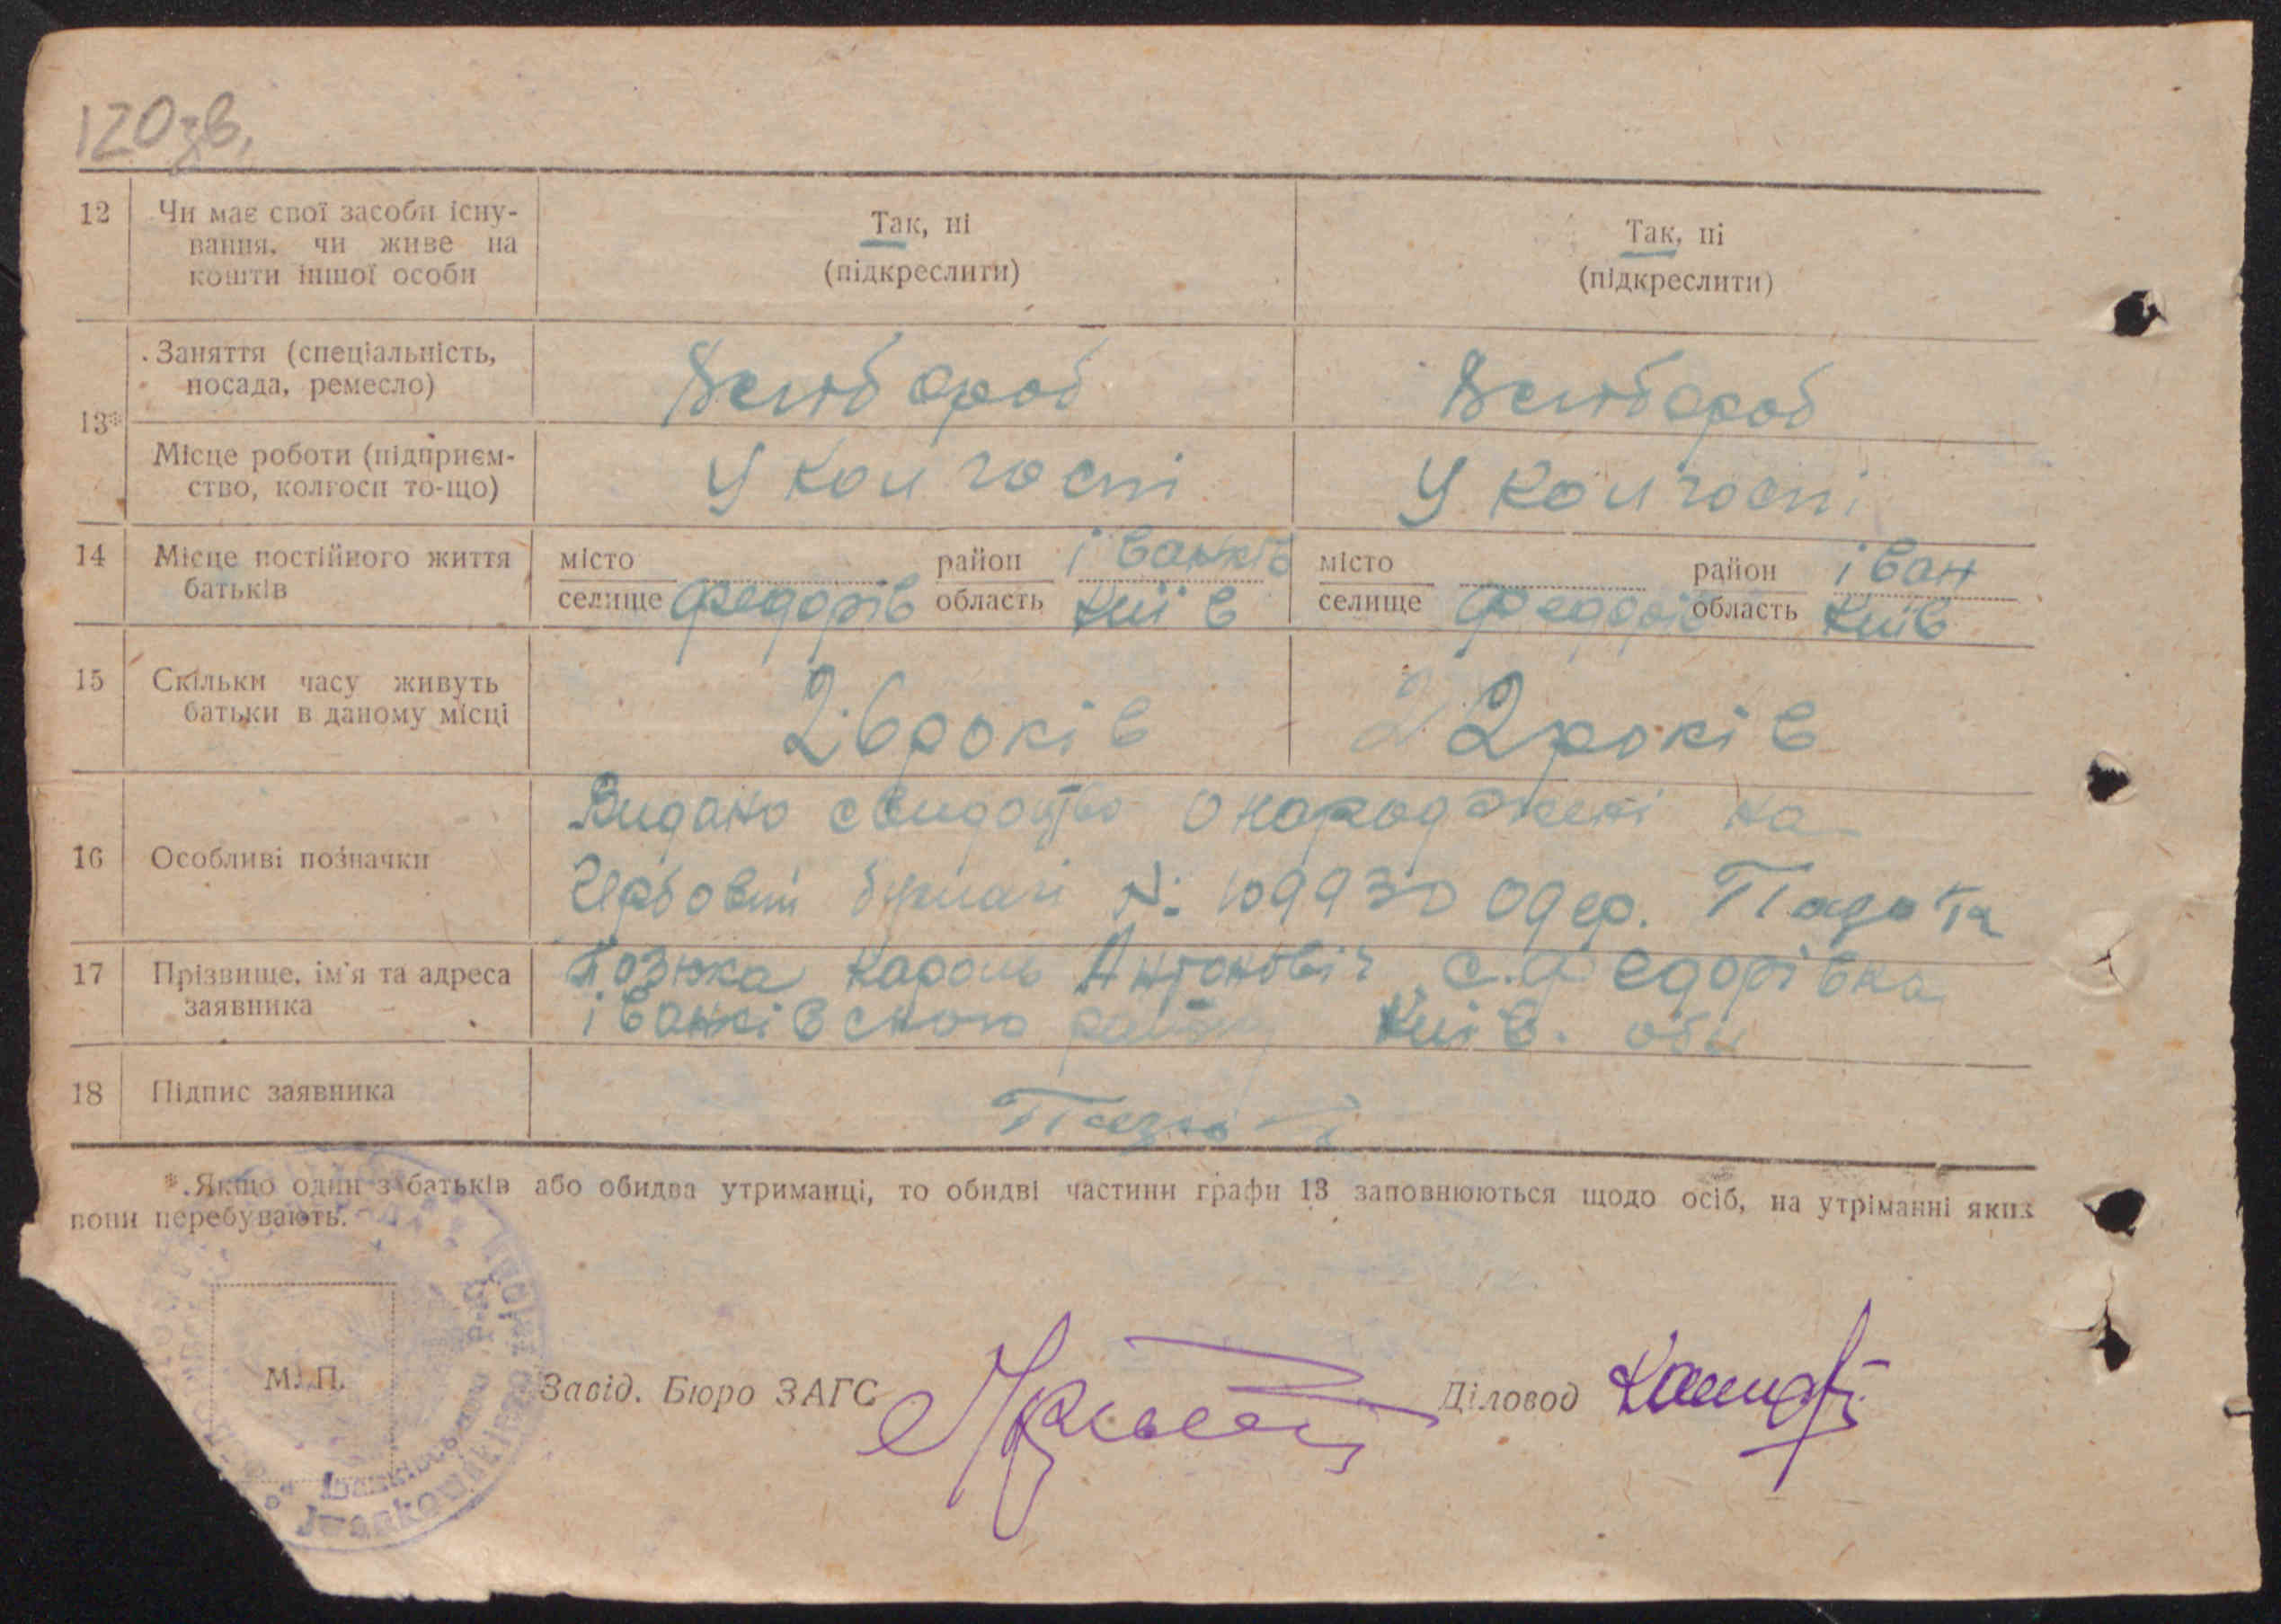 120зв.
12 Чи має свої засоби існу-
вання, чи живе на
кошти іншої особи
Так, ні
(підкреслити)
Так, ні
(підкреслити)
13*
Заняття (спеціальність,
посада, ремесло)
Хлібороб
Хлібороб
Місце роботи (підприєм-
ство, колгосп то-що)
У колгоспі
У колгоспі
14 Місце постійного життя
батьків
місто
селище Федорів
район Іванків
область Київ
місто
селище Федорів
район Іван
область Київ
15 Скільки часу живуть
батьки в даному місці
26 років
22 років
16 Особливі позначки
Видано свидоцтво о народжені на
Гербовий бумазі №: 109930 одер.
17 Прізвище, ім'я та адреса
заявника
Кароль Антоновіч с. Федорівка
Іванківского району Київ. обл
18 Підпис заявника
*. Якщо один з батьків або обидва утриманці, то обидві частини графи 13 заповнюються щодо осіб, на утріманні яких
вони перебувають.
М. П.
Завід. Бюро ЗАГС
Діловод